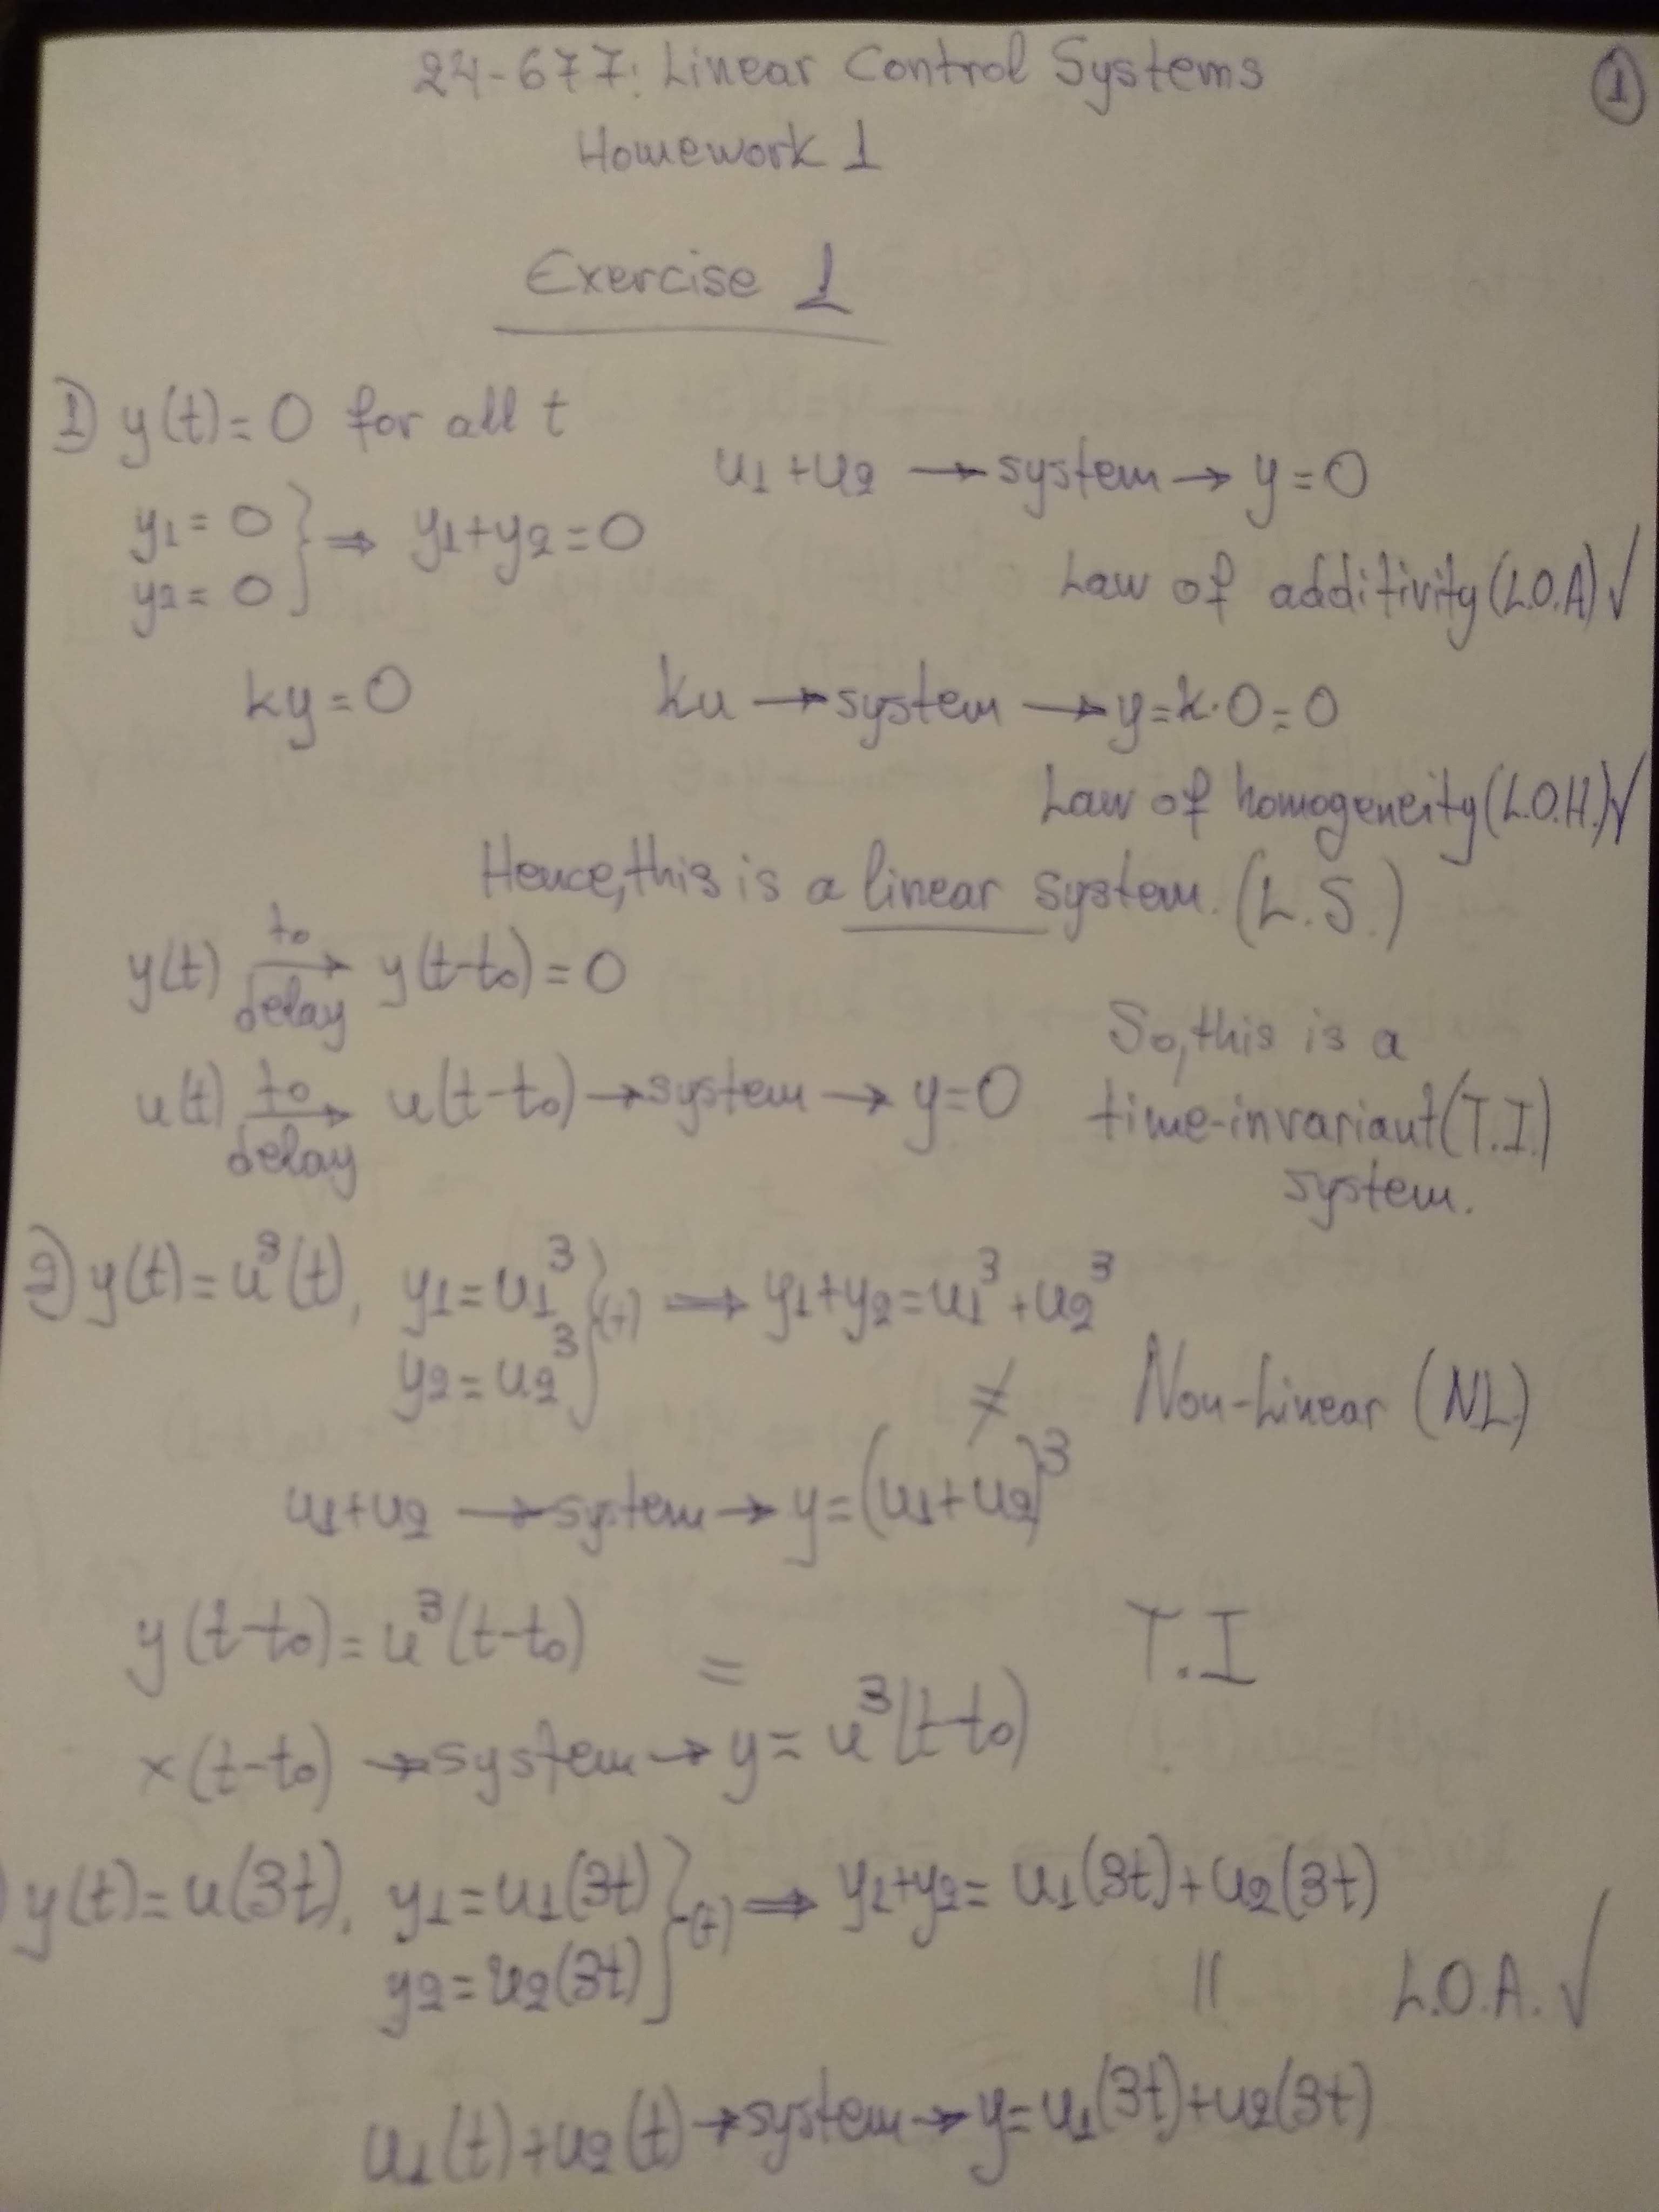 24-677: Linear Control Systems
①
Homework 1
Exercise 1
1) y(t)=0 for all t
u1+u2 → system → y=0
y1=0
y2=0 } ⇒ y1+y2=0
Law of additivity (L.O.A) √
ky=0 ku → system → y=k·0=0
Law of homogeneity (L.O.H.) √
Hence, this is a linear system. (L.S.)
y(t) →(t0 delay) y(t-t0)=0
u(t) →(t0 delay) u(t-t0) → system → y=0
So, this is a
time-invariant (T.I.)
system.
2) y(t)=u³(t), y1=u1³
y2=u2³ }(+) ⇒ y1+y2=u1³+u2³
≠
Non-Linear (NL)
u1+u2 → system → y=(u1+u2)³
y(t-t0)=u³(t-t0)
= T.I
x(t-t0) → system → y=u³(t-t0)
) y(t)=u(3t), y1=u1(3t)
y2=u2(3t) }(+) ⇒ y1+y2=u1(3t)+u2(3t)
||
L.O.A. √
u1(t)+u2(t) → system → y=u1(3t)+u2(3t)